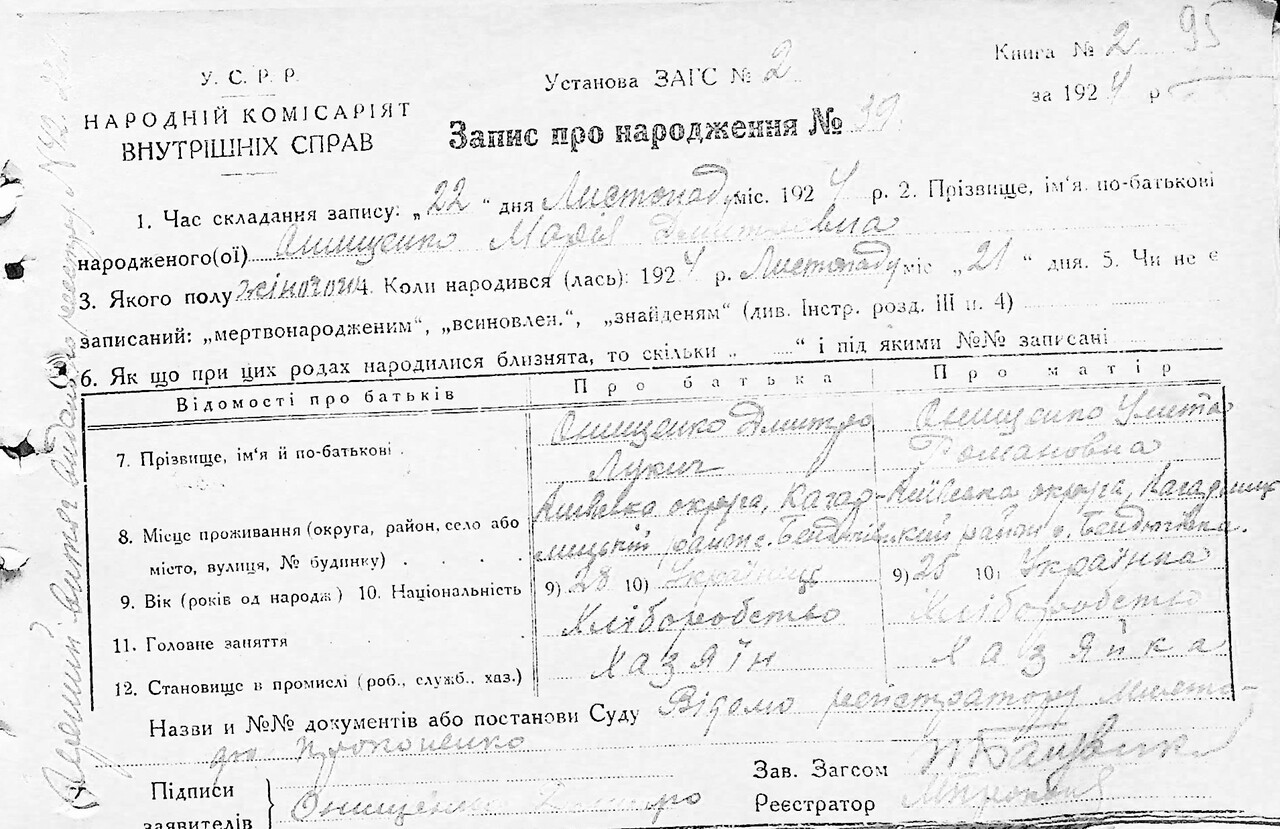 Книга № 2 95
У. С. Р. Р.
Установа ЗАГС № 2
за 1924 р
НАРОДНІЙ КОМІСАРІЯТ
ВНУТРІШНІХ СПРАВ
Запис про народження № 39
1. Час складання запису: „22“ дня Листопаду міс. 1924 р. 2. Прізвище, ім‘я. по-батькові
народженого(ої) Онищенко Марія Дмитрівна
3. Якого полу жіночого 4. Коли народився (лась): 1924 р. Листопаду міс „21“ дня. 5. Чи не є
записаний: „мертвонародженим“, „всиновлен.“, „знайденям“ (див. Інстр. розд. III п. 4)
6. Як що при цих родах народилися близнята, то скільки „ “ і під якими №№ записані
Відомості про батьків Про батька Про матір
7. Прізвище, ім‘я й по-батькові Онищенко Дмитро Онищенко Улита
Лукич Романовна
8. Місце проживання (округа, район, село або
місто, вулиця, № будинку)
9. Вік (років од народж) 10. Національність 9) 28 10) Українець 9) 25 10) Українка
11. Головне заняття Хліборобство Хліборобство
12. Становище в промислі (роб., служб., хаз.) Хазяїн Хазяйка
Назви и №№ документів або постанови Суду Відомо реєстратору
Прокопенко
Підписи
заявителів Онищенко Дмитро
Зав. Загсом
Реєстратор